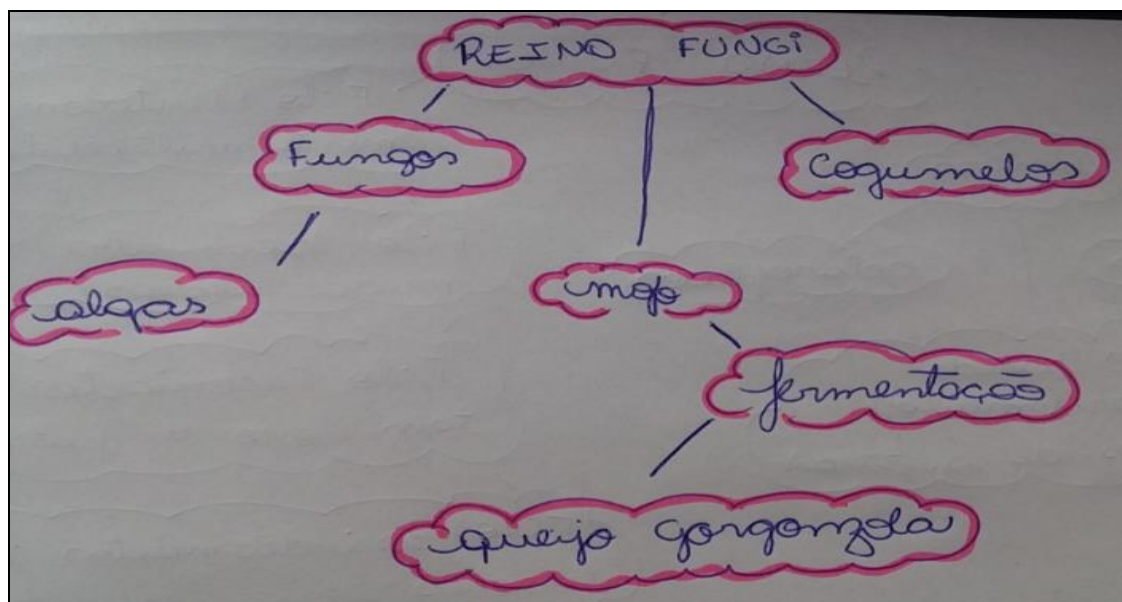 REINO FUNGI
Fungos
Cogumelos
algas
mofo
fermentação
queijo gorgonzola